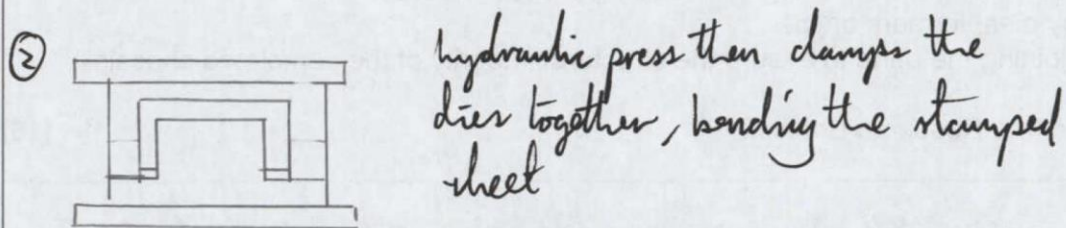 ②
hydraulic press then clamps the
dies together, bending the stamped
sheet